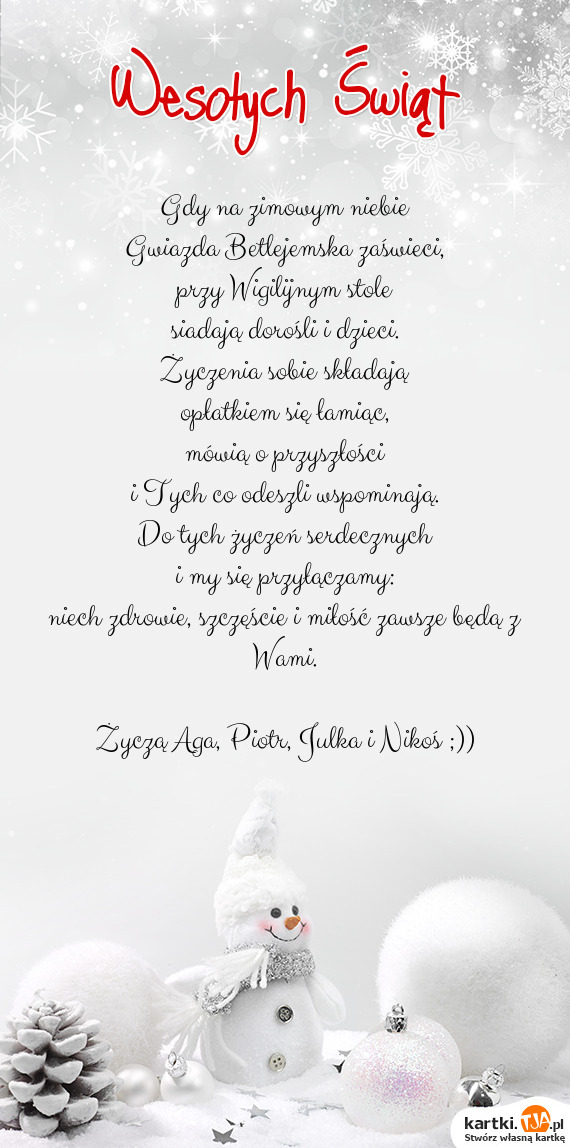 Wesołych Świąt
Gdy na zimowym niebie
Gwiazda Betlejemska zaświeci,
przy Wigilijnym stole
siadają dorośli i dzieci.
Życzenia sobie składają
opłatkiem się łamiąc,
mówią o przyszłości
i Tych co odeszli wspominają.
Do tych życzeń serdecznych
i my się przyłączamy:
niech zdrowie, szczęście i miłość zawsze będą z
Wami.
Życzą Aga, Piotr, Julka i Nikoś ;))
kartki.TJA.pl
Stwórz własną kartkę